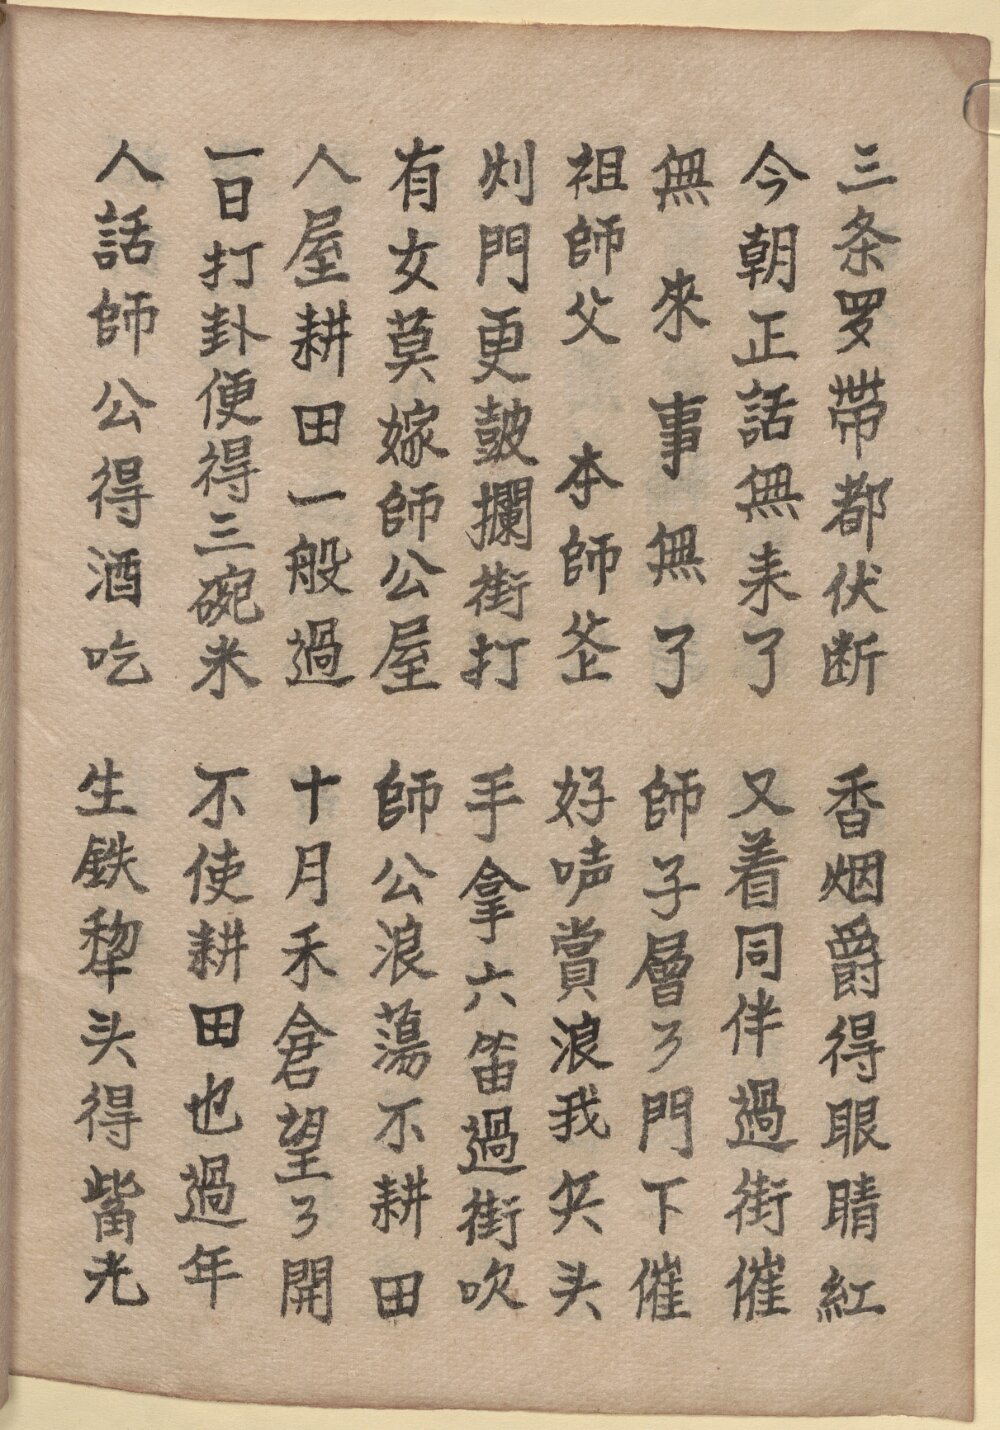 三条罗帶都伏断 香烟爵得眼睛紅
今朝正話無来了 又着同伴過街催
無來事無了 師子層了門下催
祖師父 本師爷 好声賞浪我兵头
門更鼓攔街打 手拿六笛過街吹
有女莫嫁師公屋 師公浪蕩不耕田
人屋耕田一般過 十月禾倉望了開
一日打卦便得三碗米 不使耕田也過年
人話師公得酒吃 生鉄犂头得光